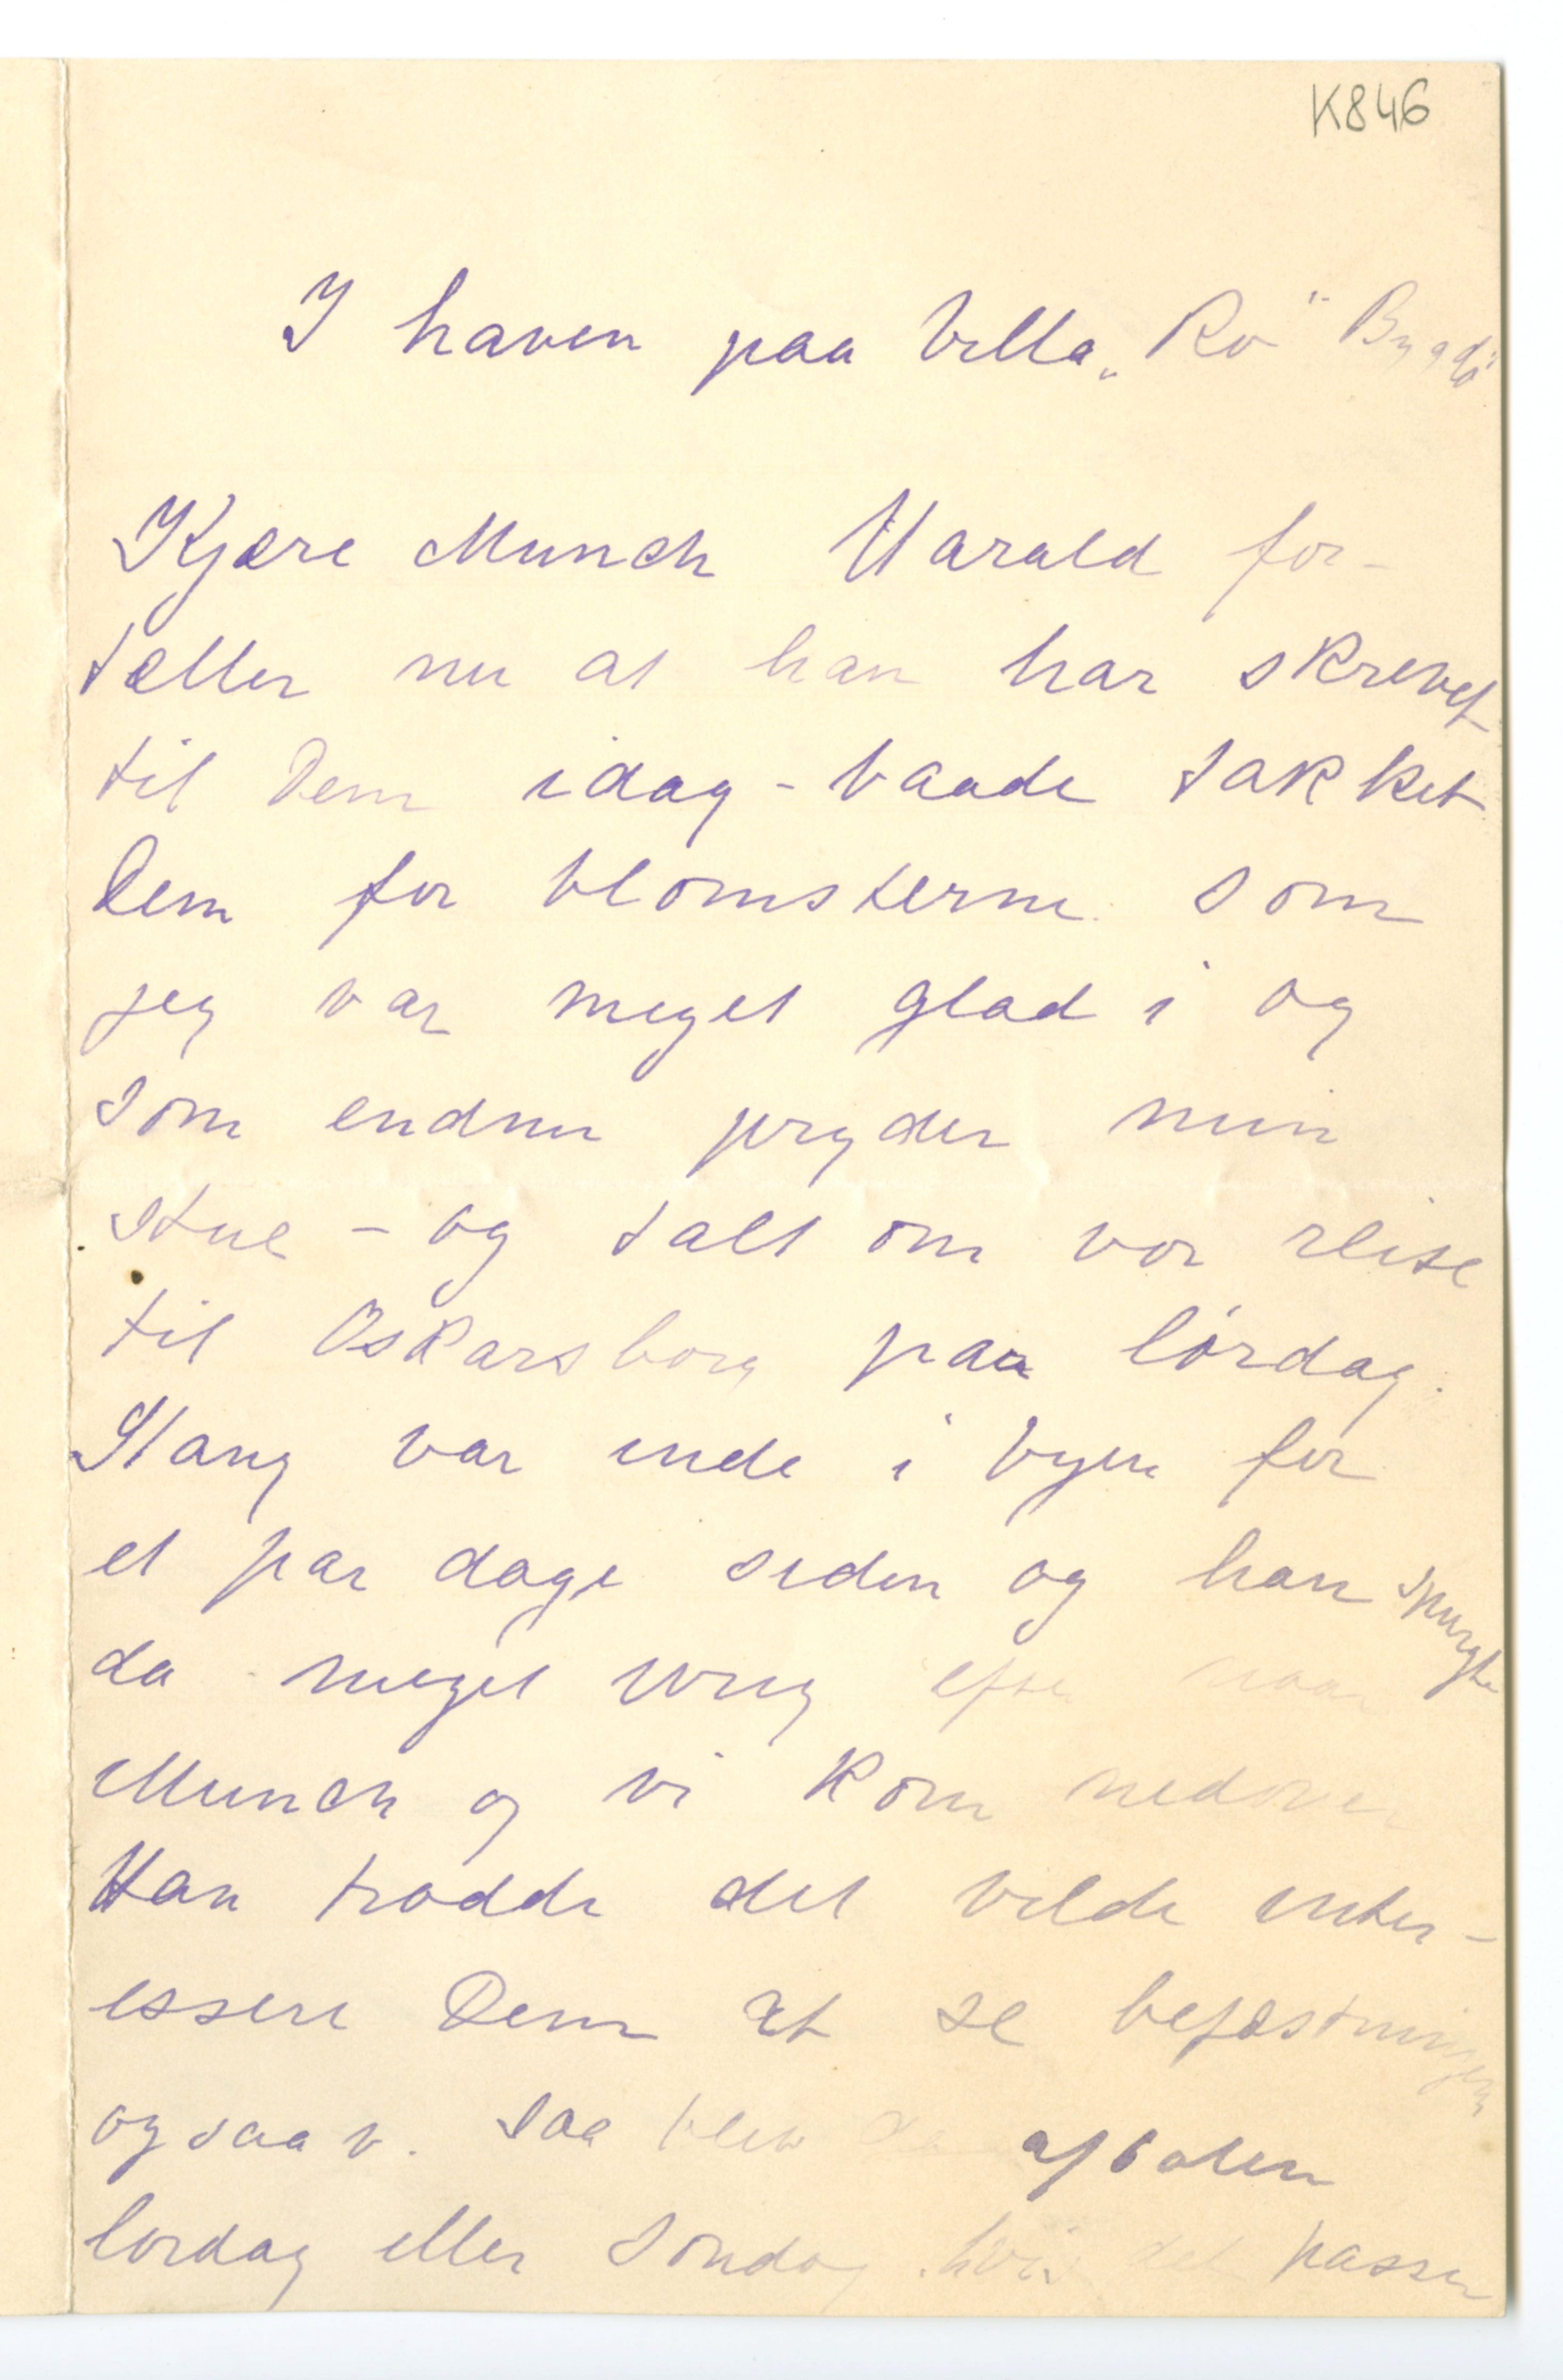 K846
I haven paa Villa „Ro" Bygdö
Kjære Munch Harald for-
tæller nu at han har skrevet
til Dem idag - baade takket
Dem for blomsterne som
jeg var meget glad i og
som endnu pryder min
stue - og talt om vor reise
til Oskarsborg paa lördag.
Stang var inde i byen for
et par dage siden og han spurgte
da meget ivrig efter naar
Munch og vi kom nedover
Han trodde det vilde inter-
essere Dem at se befæstningen
ogsaa v. Saa blev da aftalen
lordag eller Sondag hvis det passer